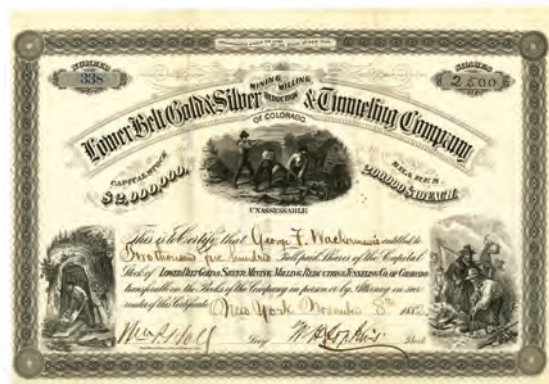 NUMBER
338
SHARES
2500
Lower Belt Gold & Silver MINING, MILLING, REDUCTION & Tunneling Company
OF COLORADO.
CAPITAL STOCK
$2,000,000.
SHARES
200,000 $10 EACH.
UNASSESSABLE
This is to Certify, that George F. Wackerman is entitled to
Two thousand five hundred Full paid Shares of the Capital
Stock of LOWER BELT GOLD & SILVER MINING, MILLING, REDUCTION & TUNNELING CO. OF COLORADO
transferable on the Books of the Company in person or by Attorney on sur-
render of this Certificate
New York November 8th 188
Secy.
Prest.